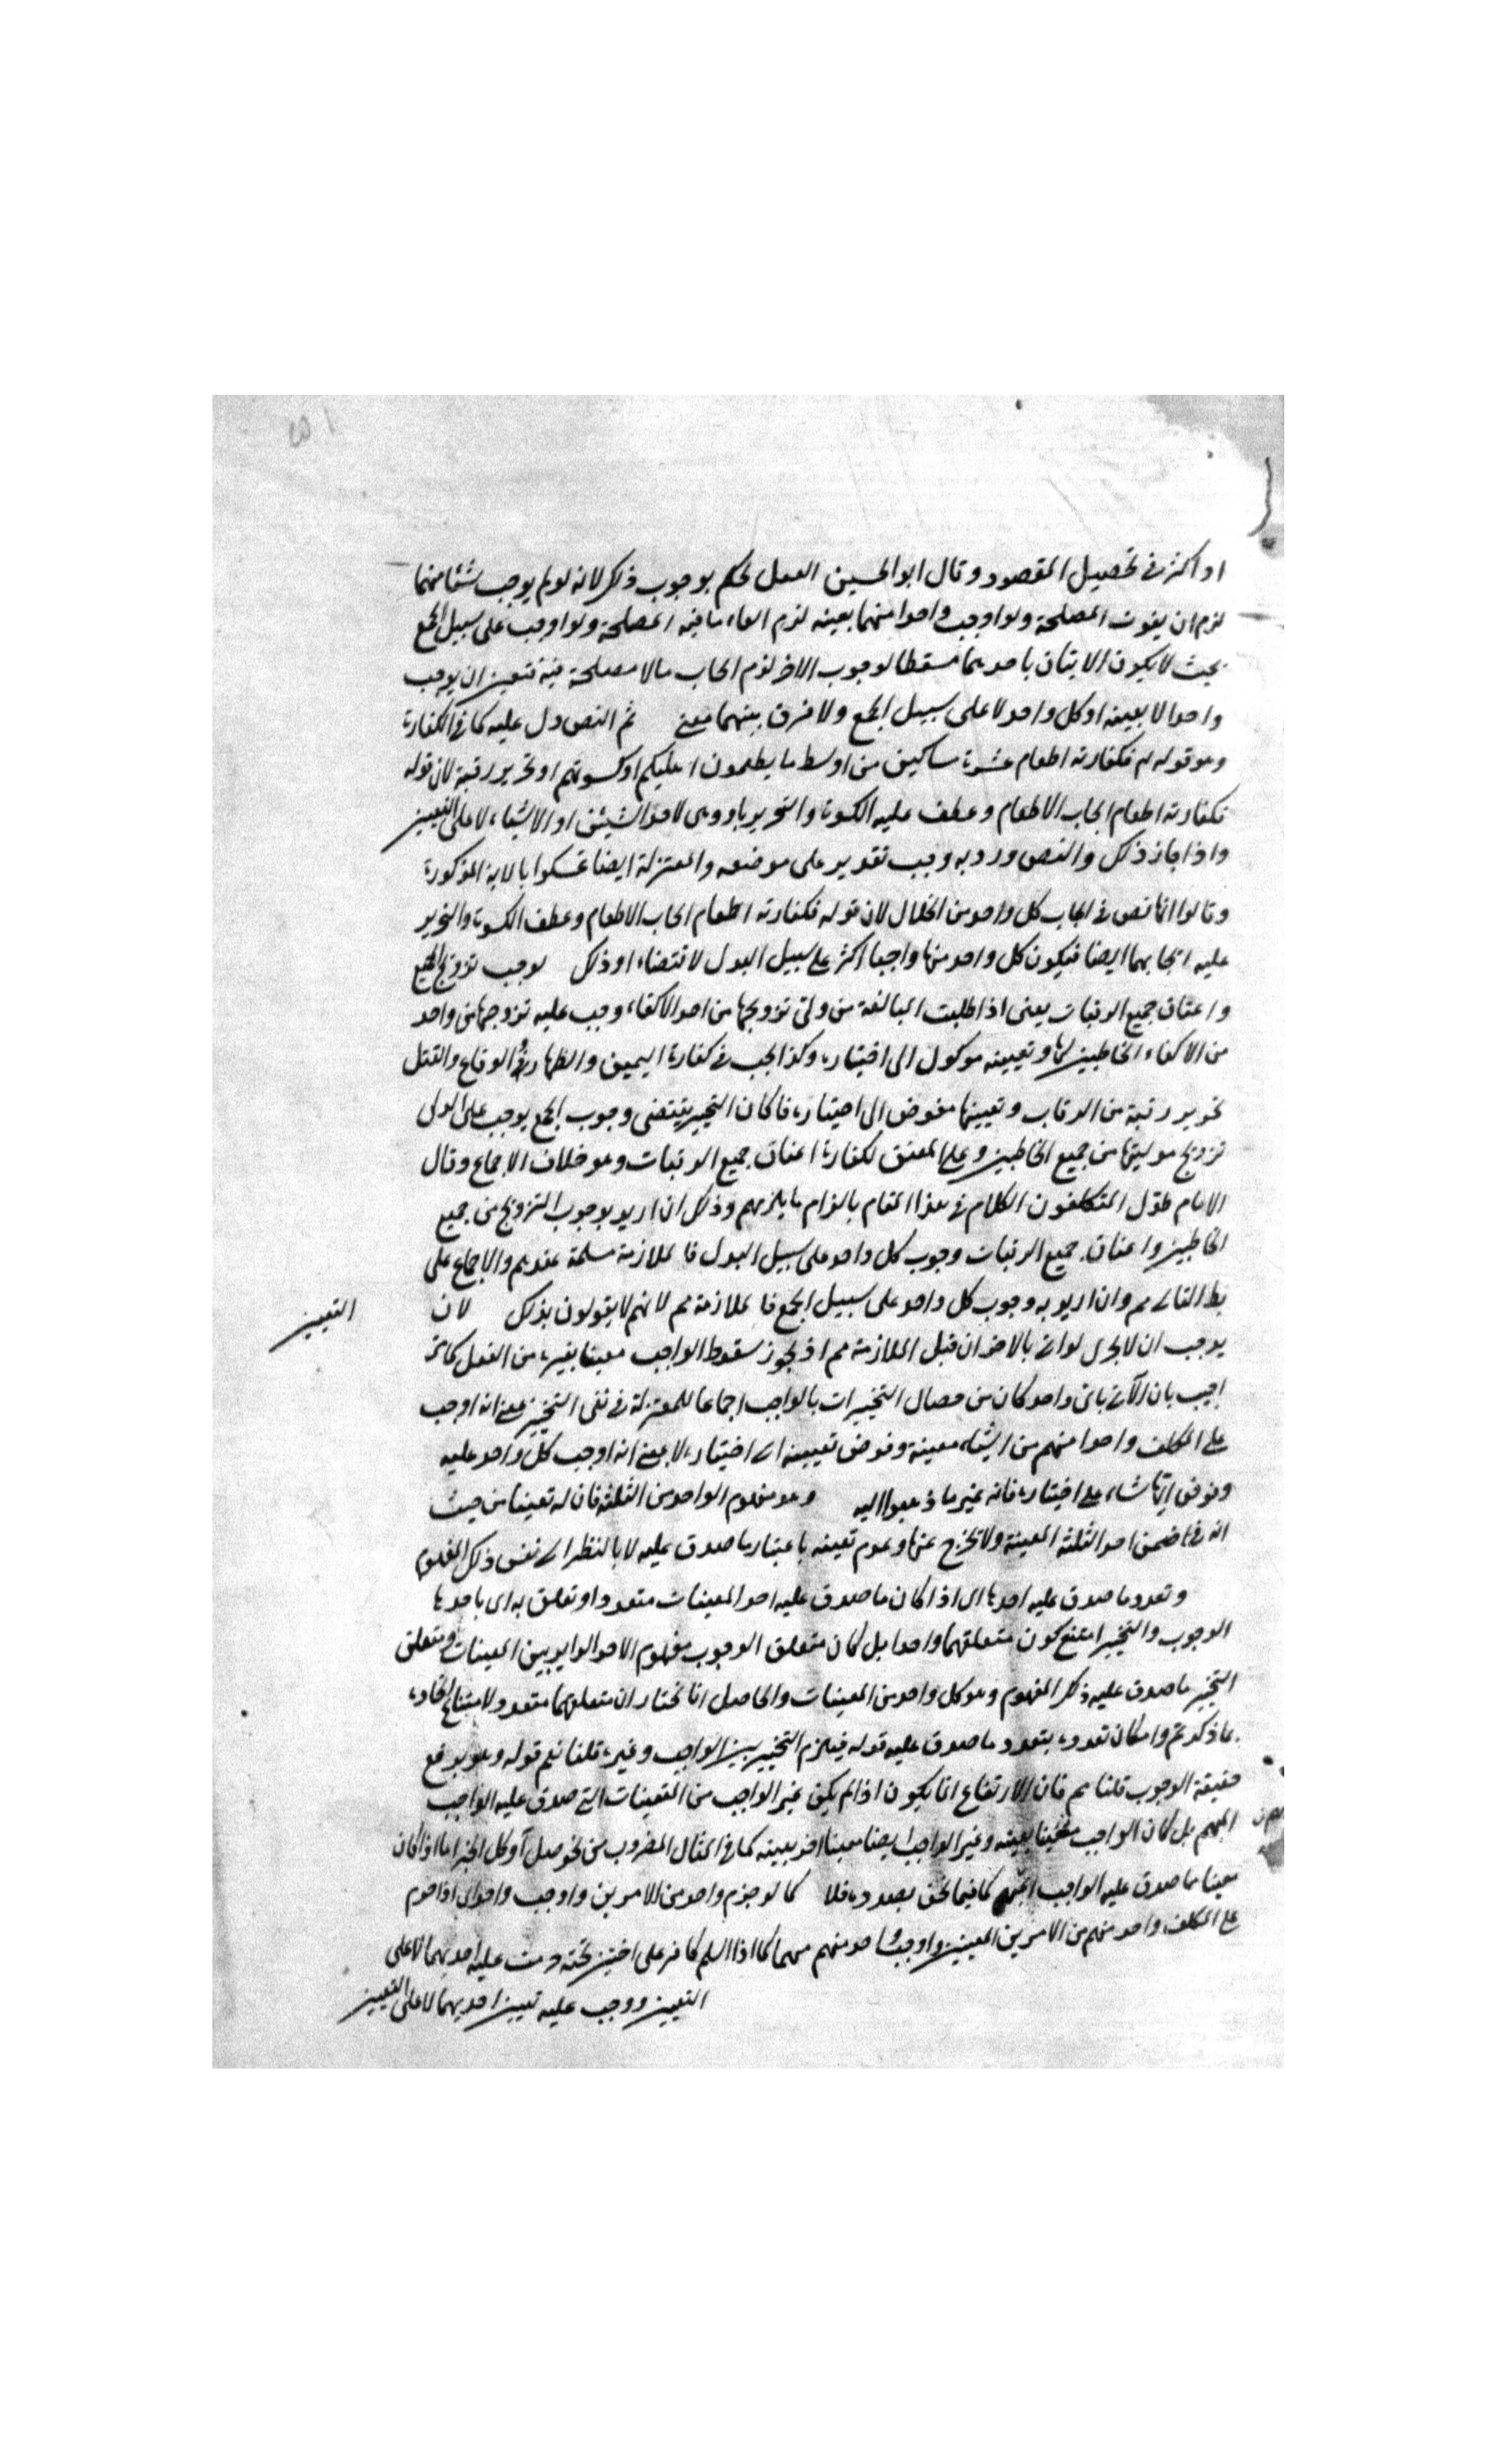 او اكثر في تحصيل المقصود وقال ابو الحسين العقل يحكم بوجوب ذلك لانه لو لم يوجب شيئا منهما
لزم ان يفوت المصلحة ولو اوجب واحدا منهما بعينه لزم الغاء ما فيه المصلحة ولو اوجب على سبيل الجمع
بحيث لا يكون الاتيان باحدهما مسقطا لوجوب الاخر لزم ايجاب ما لا مصلحة فيه فتعين ان يوجب
واحدا لا بعينه او كل واحد لا على سبيل الجمع ولا فرق بينهما معنى ثم النص دل عليه كما في الكفارة
وهو قوله تع فكفارته اطعام عشرة مساكين من اوسط ما يطعمون اهليكم او كسوتهم او تحرير رقبة لان قوله
فكفارته اطعام ايجاب الاطعام وعطف عليه الكسوة والتحرير باو وهى لاحد الشيئين او الاشياء لا على التعيين
واذا جاز ذلك والنص ورد به وجب تقديره على موضعه والمعتزلة ايضا تمسكوا بالاية المذكورة
وقالوا انها نص في ايجاب كل واحد من الخلال لان قوله فكفارته اطعام ايجاب الاطعام وعطف الكسوة والتحرير
عليه ايجابهما ايضا فيكون كل واحد منها واجبا اكثر على سبيل البدل لاقتضاء او ذلك يوجب تزويج الجميع
واعتاق جميع الرقبات يعنى اذا طلبت البالغة من ولي تزويجها من احد الاكفاء وجب عليه تزوجها من واحد
من الاكفاء الخاطبين لها وتعيينه موكول الى اختياره وكذا يجب في كفارة اليمين والظهار والوقاع والقتل
تحرير رقبة من الرقاب وتعيينها مفوض الى اختياره فلو كان التخيير يقتضى وجوب الجمع يوجب على الولى
تزويج موليتها من جميع الخاطبين وعلى المعتق لكفارة اعتاق جميع الرقبات وهو خلاف الاجماع وقال
الامام طوّل المتكلفون الكلام في هذا المقام بالزام ما يلزمهم وذلك ان اريد بوجوب التزويج من جميع
الخاطبين واعتاق جميع الرقبات وجوب كل واحد على سبيل البدل فالملازمة مسلمة عندهم والاجماع على
بط التالى مم وان اريد به وجوب كل واحد على سبيل الجمع فالملازمة مم لانهم لا يقولون بذلك لان التعيين
يوجب ان لا يجزى لو اتى بالاخر ان قيل الملازمة مم اذ يجوز سقوط الواجب معينا بغيره من الفعل كما مر
اجيب بان الآتى باى واحد كان من خصال التخييرات بالواجب اجماعا للمعتزلة في نفى التخيير بمعنى انه اوجب
على المكلف واحدا منهم من اشياء معينة وفوض تعيينه الى اختياره لا بمعنى انه اوجب كل واحد عليه
وفوض ايّها شاء على اختياره فانه غير ما ذهبوا اليه وهو مفهوم الواحد من الثلثة فان له تعينا من حيث
انه في ضمن احد الثلثة المعينة ولا يخرج عنها وعدم تعينه باعتبار ما صدق عليه لا بالنظر الى نفس ذلك المفهوم
وتعدد ما صدق عليه احدها اى اذا كان ما صدق عليه احد المعينات متعددا وتعلق به اى باحدها
الوجوب والتخيير امتنع كون متعلقهما واحدا بل كان متعلق الوجوب مفهوم الاحد الداير بين المعينات ومتعلق
التخيير ما صدق عليه ذلك المفهوم وهو كل واحد من المعينات والحاصل انا نختار ان متعلقهما متعدد لامتناع اتحاده
بما ذكرتم وامكان تعدده بتعدد ما صدق عليه قوله فيلزم التخيير بين الواجب وغيره قلنا نعم قوله وهو يرفع
حقيقة الوجوب قلنا مم فان الارتفاع انما يكون اذا لم يكن غير الواجب من التعينات التي صدق عليه الواجب
المبهم بل كان الواجب معينا بعينه وغير الواجب ايضا معينا اخر بعينه كما في المثال المضروب من نحو صل او كل الخبز اما اذا كان
معينا ما صدق عليه الواجب المبهم كما فيما نحن بصدده فلا كما لو حرم واحد من الامرين واوجب واحد اى اذا حرم
على المكلف واحد منهم من الامرين المعينين واوجب واحد منهم مبهما كما اذا اسلم كافر على اختين تحته حرمت عليه احديهما لا على
التعيين ووجب عليه تعيين احديهما لا على التعيين